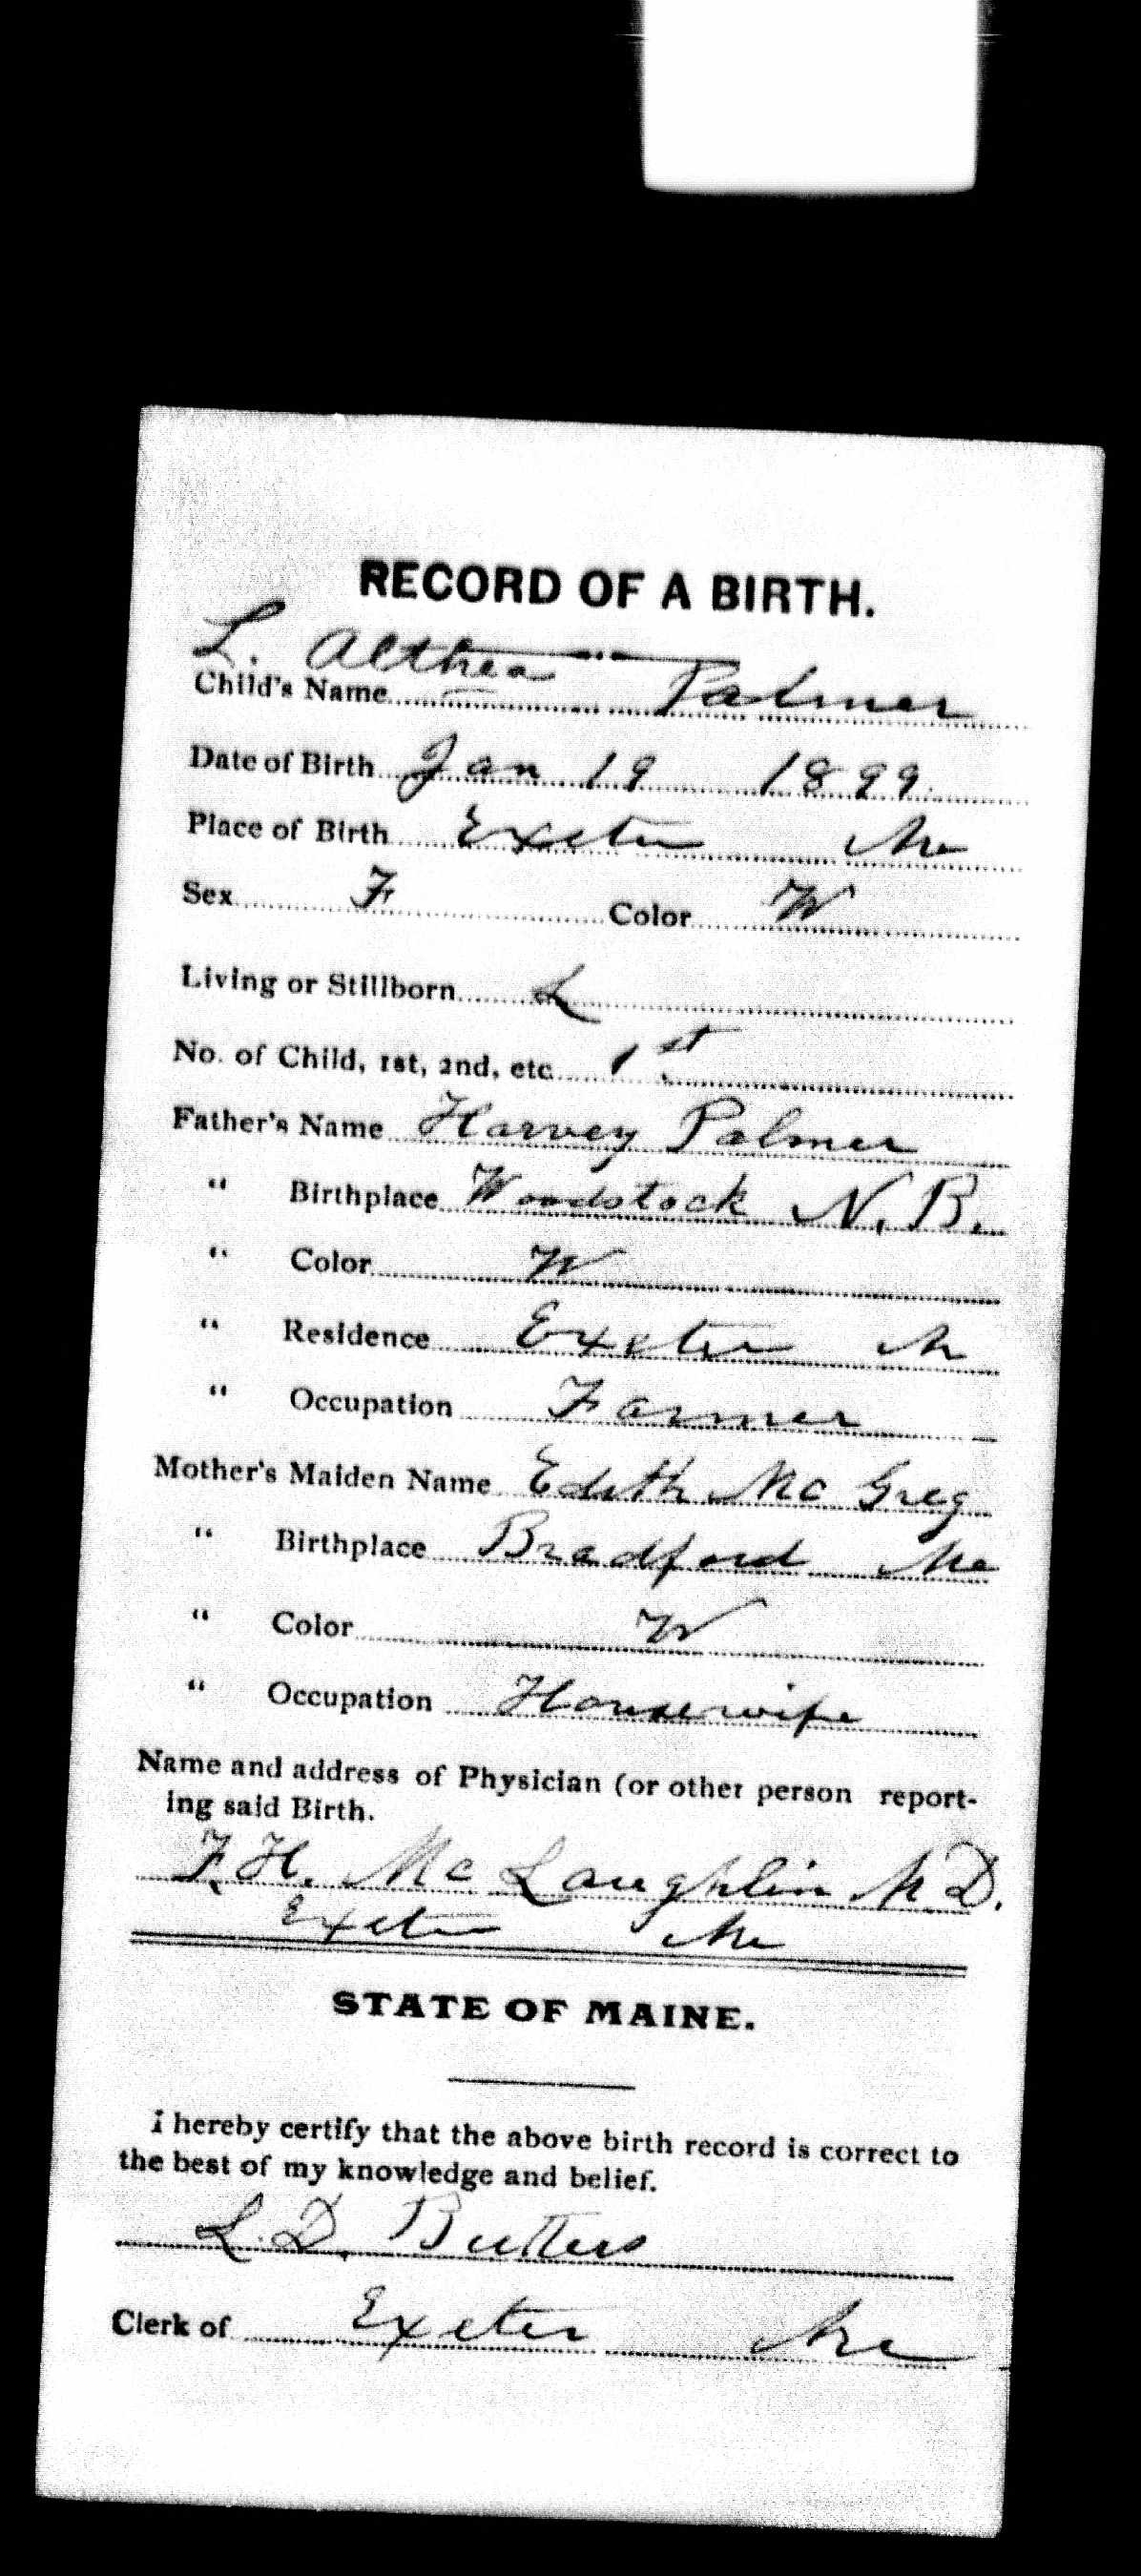 RECORD OF A BIRTH.
L. Althea
Child's Name Palmer
Date of Birth Jan 19 1899.
Place of Birth Exeter Me
Sex F Color W
Living or Stillborn L
No. of Child, 1st, 2nd, etc 1st
Father's Name Harvey Palmer
" Birthplace Woodstock N. B.
" Color W
" Residence Exeter M
" Occupation Farmer
Mother's Maiden Name Edith Mc Greg
" Birthplace Bradford Me
" Color W
" Occupation Housewife
Name and address of Physician (or other person report-
ing said Birth.
F. H. Mc Laughlin M D.
Exeter Me
STATE OF MAINE.
I hereby certify that the above birth record is correct to
the best of my knowledge and belief.
L. D. Butters
Clerk of Exeter Me